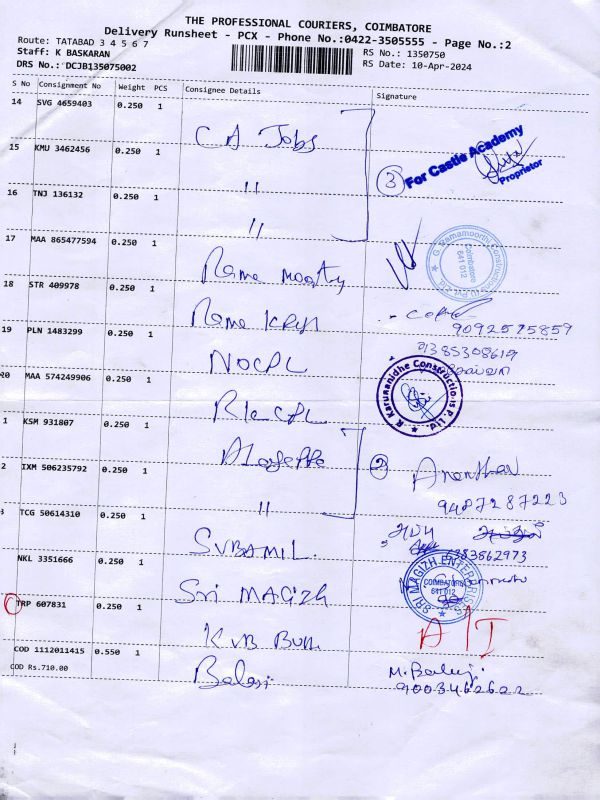 THE PROFESSIONAL COURIERS, COIMBATORE
Delivery Runsheet - PCX - Phone No.:0422-3505555 - Page No.:2
Route: TATABAD 3 4 5 6 7
RS No.: 1350750
Staff: K BASKARAN
RS Date: 10-Apr-2024
DRS No.:DCJB135075002
S No Consignment No Weight PCS Consignee Details Signature
14 SVG 4659403 0.250 1
CA Jobs
15 KMU 3462456 0.250 1
3 For Castle Academy
Proprietor
16 TNJ 136132 0.250 1 "
"
17 MAA 865477594 0.250 1
Rama moorthy
G. Ramamoorthi Constructions (I) Pvt Ltd
Coimbatore
641 012
18 STR 409978 0.250 1
Rama Krish
9092575859
19 PLN 1483299 0.250 1
9385308619
NOCPL
20 MAA 574249906 0.250 1
R Karunanidhe Constructions P. Ltd.
1 KSM 931807 0.250 1
2
2 IXM 506235792 0.250 1 "
9487287223
3 TCG 50614310 0.250 1
6383862973
SUBAMIL
NKL 3351666 0.250 1
Sri MAGIZH
SRI MAGIZH ENTERPRISES
COIMBATORE
641 012
TRP 607831 0.250 1
A/T
KVB Bun
COD 1112011415 0.550 1
COD Rs.710.00
Balaji
M. Balaji
9003462622